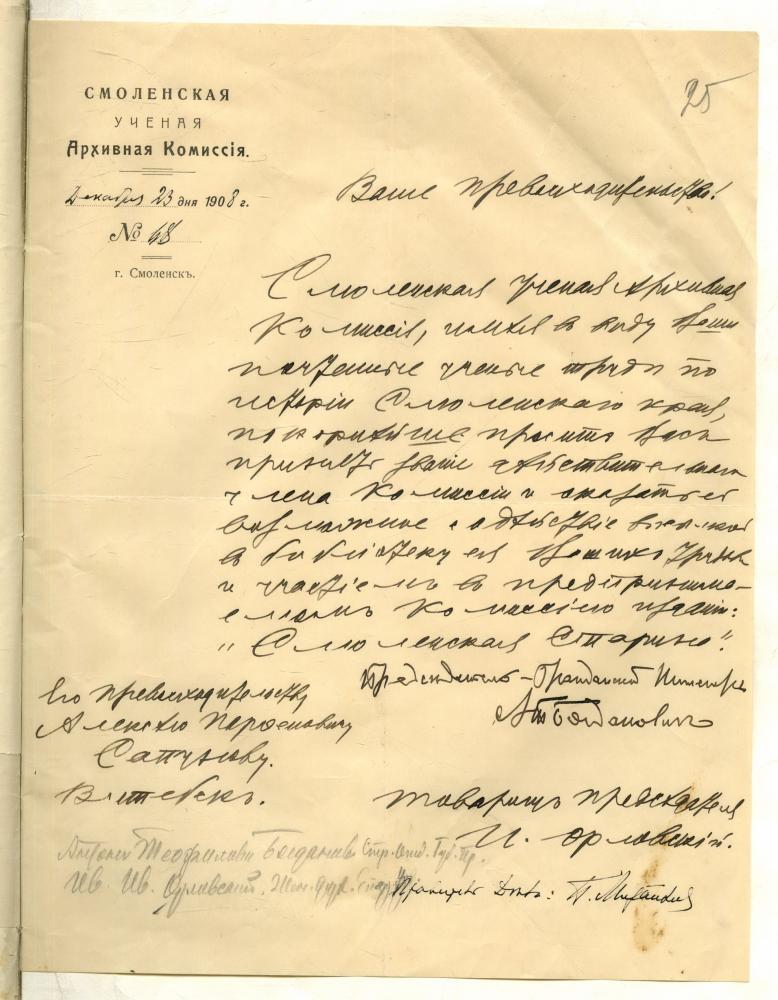 25
СМОЛЕНСКАЯ
УЧЕНАЯ
Архивная Комиссія.
Декабря 23 дня 1908 г.
№ 68
г. Смоленскъ.
Ваше превосходительство!
Смоленская ученая Архивная
Комиссія, имѣя в виду Ваши
почтенные ученые труды по
исторіи Смоленскаго края,
покорнѣйше проситъ Васъ
принять званіе дѣйствительнаго
члена Комиссіи и оказать ей
возможное содѣйствіе
в библіотеку ея Вашихъ трудов
и участіемъ в предпринима-
емомъ Комиссіею изданіи:
"Смоленская Старина".
Предсѣдатель - Гражданскій Инженеръ
Ант Богдановичъ
Его превосходительству
Алексѣю Парѳеновичу
Сапунову.
Витебскъ.
товарищъ предсѣдателя
И. Орловскій.
Антонъ Теофилови Богданов. Стр. Отд. Губ. Пр.
Ив. Ив. Орловскій.
Правитель Дѣлъ: